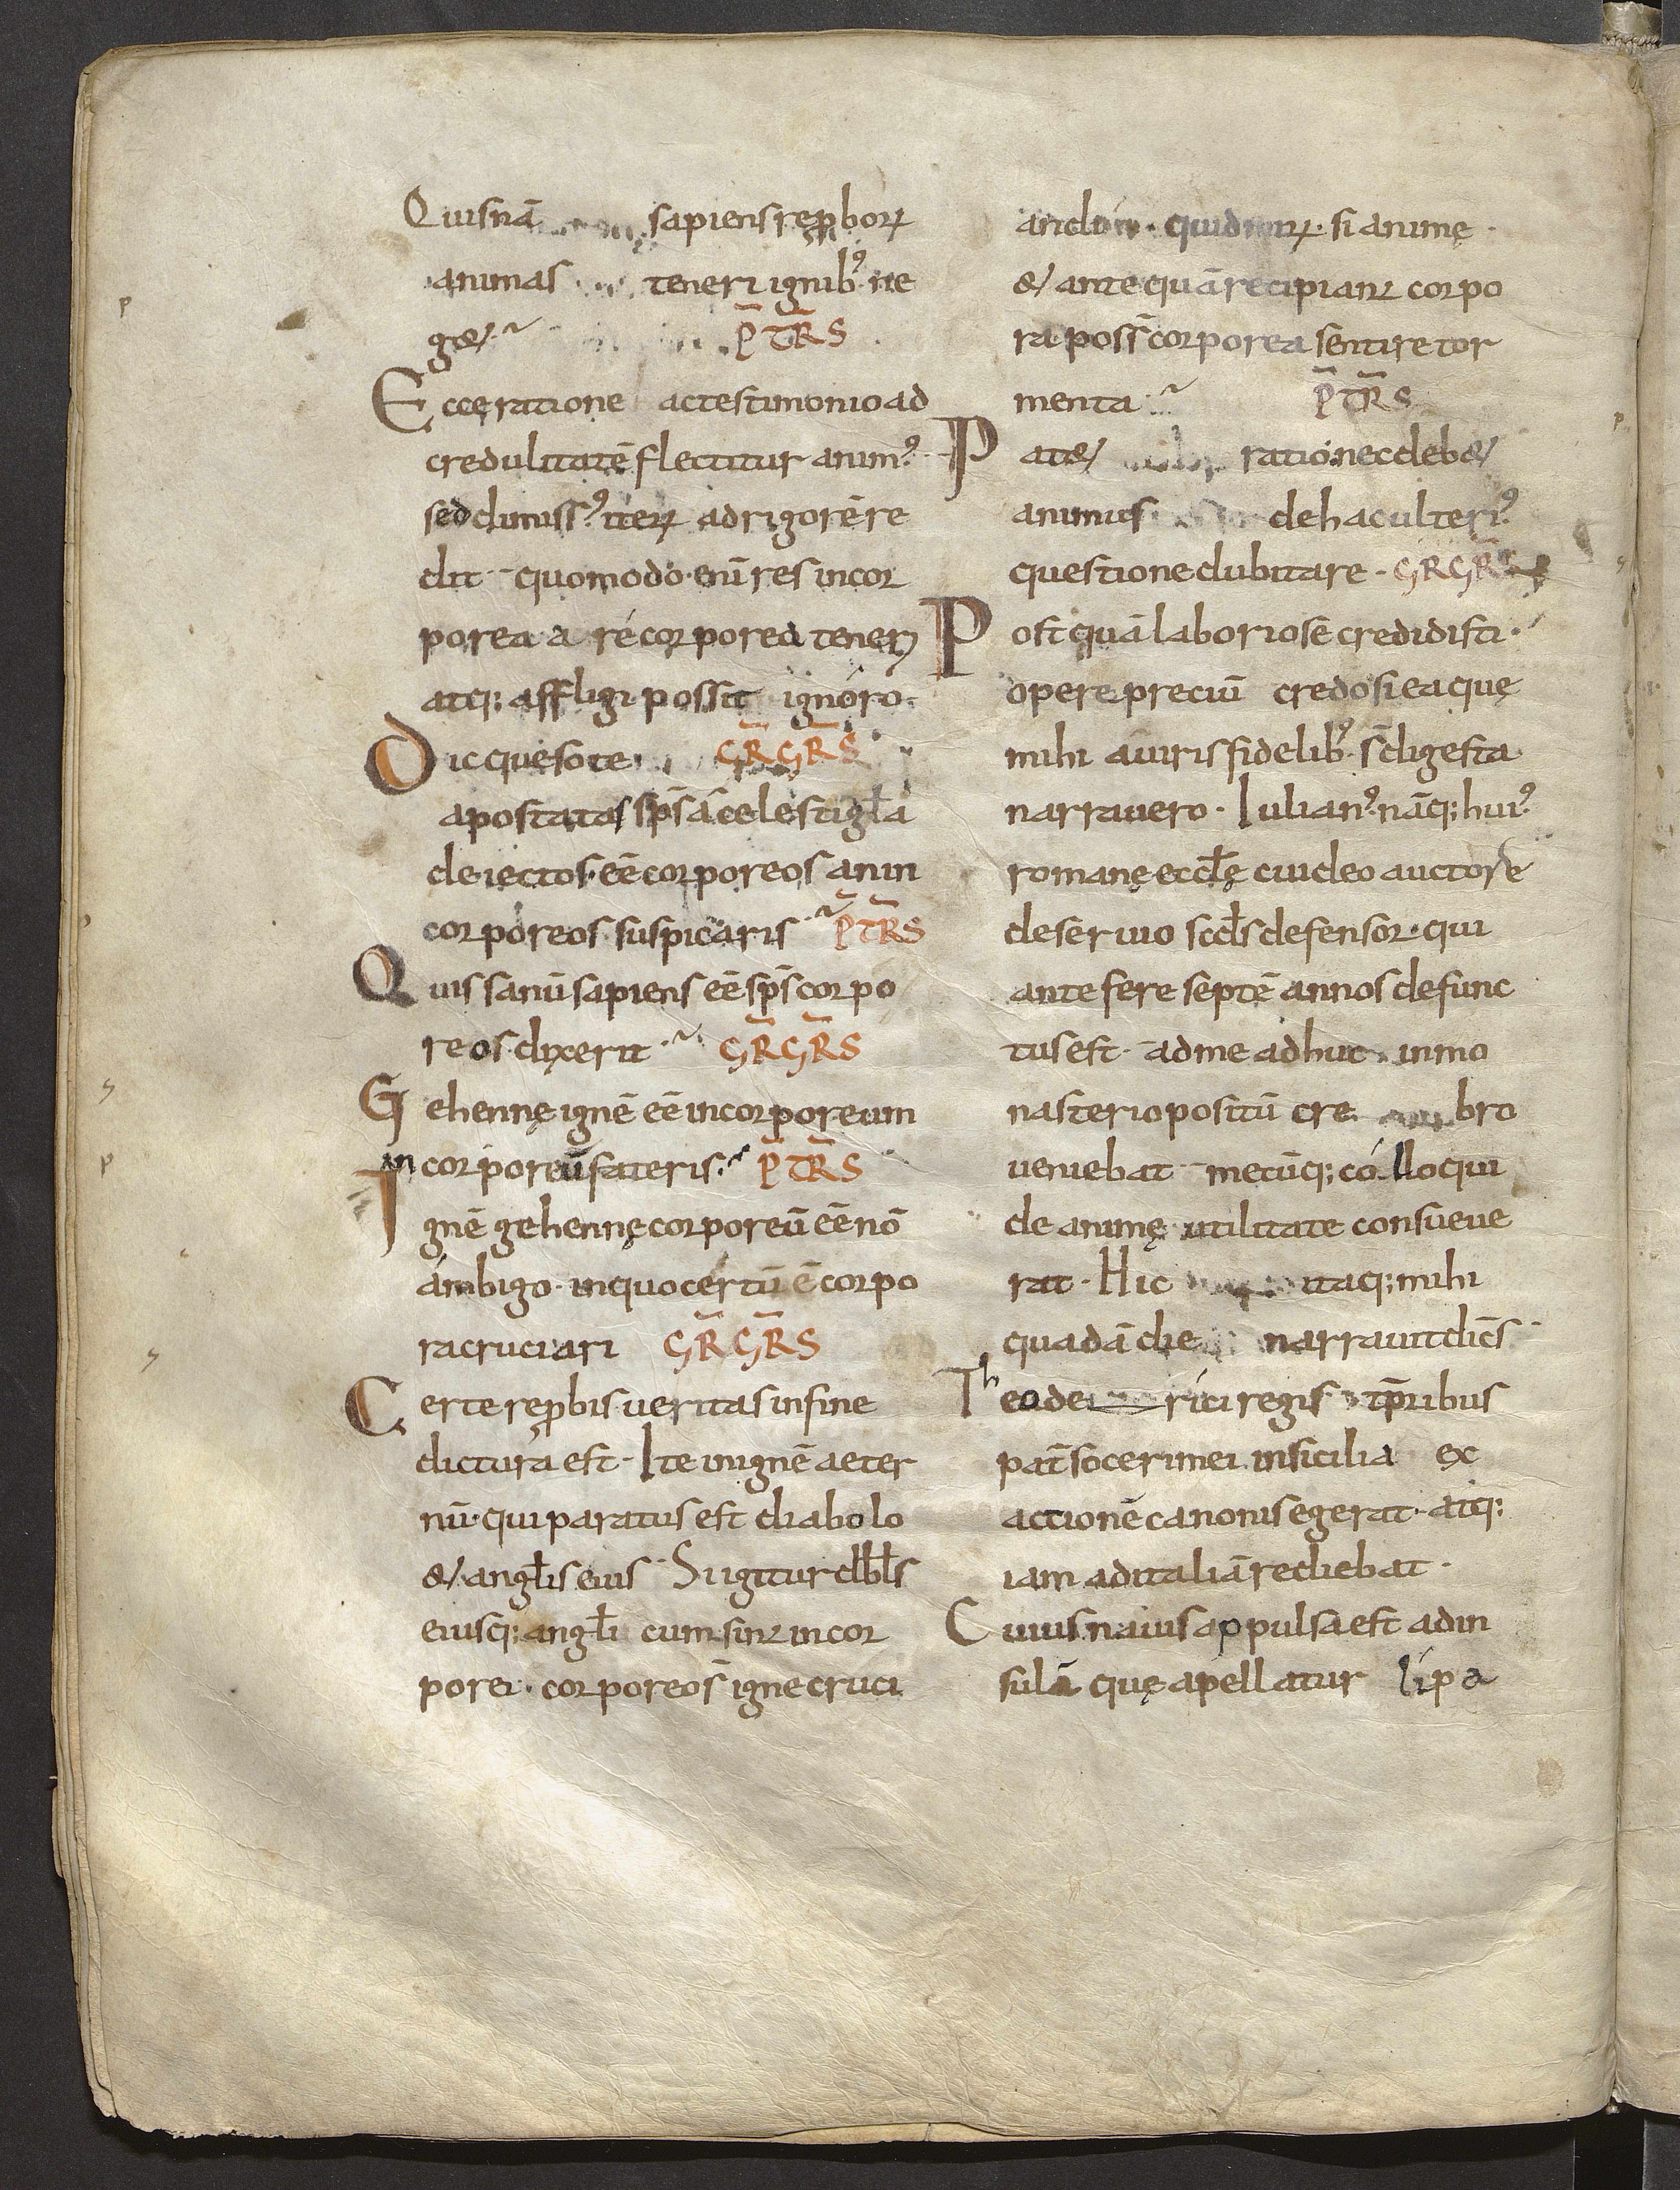 Quisnā sapiens rep̱borꝝ
animas teneri ignib; ne
g& PTRS
Ecce ratione ac testimonio ad
credulitatē flectitur animꝰ
sed dimissꝰ iterꝝ ad rigorē re
dit · quomodo enī res incor
porea a re corporea teneri
atq; affligi possit ignoro ·
Dic queso te GRGRS
apostatas sp̄s a celesti gła
deiectos · eē corporeos an in
corporeos suspicaris PTRS
Quis sanū sapiens eē sp̄s corpo
reos dixerit GRGRS
Gehennę ignē eē incorporeum
in corporeū fateris · PTRS
Ignē gehennę corporeū eē nō
ambigo · in quo certū ē corpo
ra cruciari GRGRS
Certe rep̱bis veritas in fine
dictura est · Ite in ignē aeter
nū · qui paratus est diabolo
& angłis eius · Si igitur dbłs
eiusq; angłi cum sint incor
porei · corporeo igne cruci
andi · quid mirꝝ · si animę
& antequā recipiant corpo
ra poss̄ corporea sentire tor
menta PTRS
Pat& ratio nec deb&
animus de hac ulteriꝰ
questione dubitare · GRGRS
Postquā laboriose credidisti ·
opere preciū credo si ea quę
mihi a viris fidelibꝰ s̄ digesta
narravero · Iulianꝰ nāq; huiꝰ
romanę eccłę cui deo auctore
deservio scd̄s defensor · qui
ante fere septē annos defunc
tus est · ad me adhuc in mo
nasterio positū cre bro
veniebat mecūq; colloqui
de animę utilitate consueve
rat · Hic itaq; mihi
quadā die narravit dicēs
Theode rici regis tp̄ribus
pat̄ soceri mei in sicilia ex
actionē canonis egerat · atq;
iam ad italiā rediebat ·
Cuius navis appulsa est ad in
sulā quę apellatur lipa